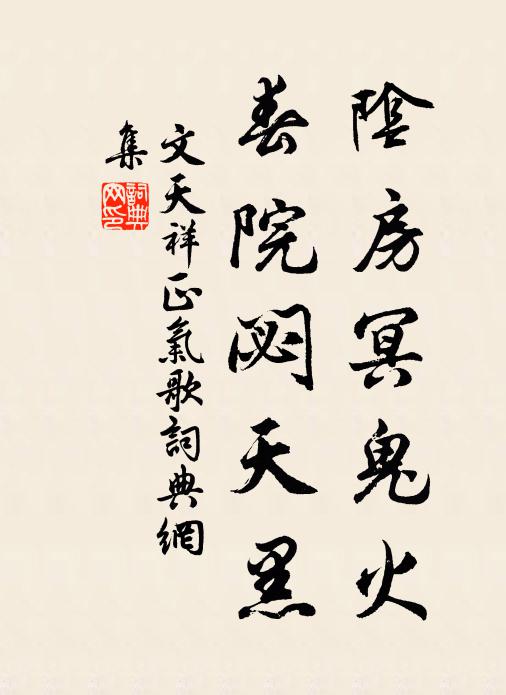 陰房冥鬼火
春院閟天黑
文天祥正氣歌詞典網
集
詞典
网印